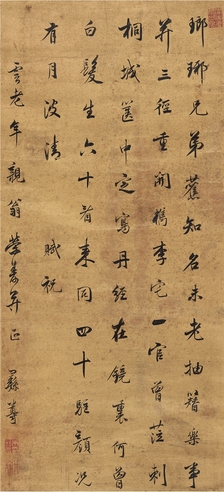 瑯琊兄弟舊知名未老抽簪樂事
并三徑重開檇李宅一官曾蒞刺
桐城篋中定寫丹經在鏡裏何曾
白髮生六十看來同四十駐顏況
有月波清 賦祝
雲老年親翁榮壽并正